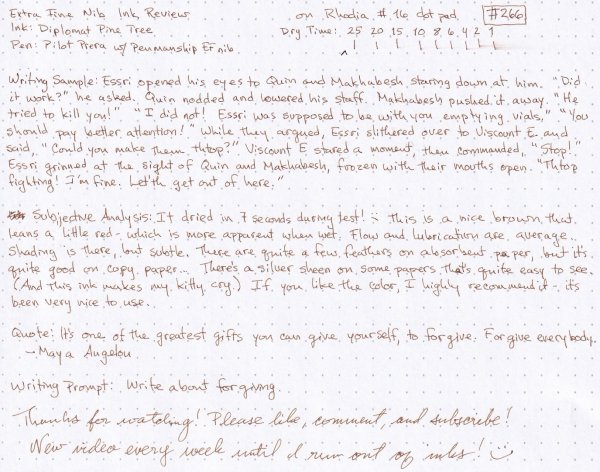 Extra Fine Nib Ink Review on Rhodia #16 dot pad #266
Ink: Diplomat Pine Tree Dry Time: 25 20 15 10 8 6 4 2 1
Pen: Pilot Prera w/ Penmanship EF nib
Writing Sample: Essri opened his eyes to Quin and Makhabesh staring down at him. "Did
it work?" he asked. Quin nodded and lowered his staff. Makhabesh pushed it away. "He
tried to kill you!" "I did not! Essri was supposed to be with you emptying vials." "You
should pay better attention!" While they argued, Essri slithered over to Viscount E. and
said, "Could you make them thtop?" Viscount E stared a moment, then commanded, "Stop!"
Essri grinned at the sight of Quin and Makhabesh, frozen with their mouths open. "Thtop
fighting! I'm fine. Let'th get out of here."
Subjective Analysis: It dried in 7 seconds during test! :) This is a nice brown that
leans a little red - which is more apparent when wet. Flow and lubrication are average.
Shading is there, but subtle. There are quite a few feathers on absorbent paper, but it's
quite good on copy paper... There's a silver sheen on some papers that's quite easy to see.
(And this ink makes my kitty cry.) If you like the color, I highly recommend it - it's
been very nice to use.
Quote: It's one of the greatest gifts you can give yourself, to forgive. Forgive everybody.
- Maya Angelou
Writing Prompt: Write about forgiving.
Thanks for watching! Please like, comment, and subscribe!
New video every week until I run out of inks! :)